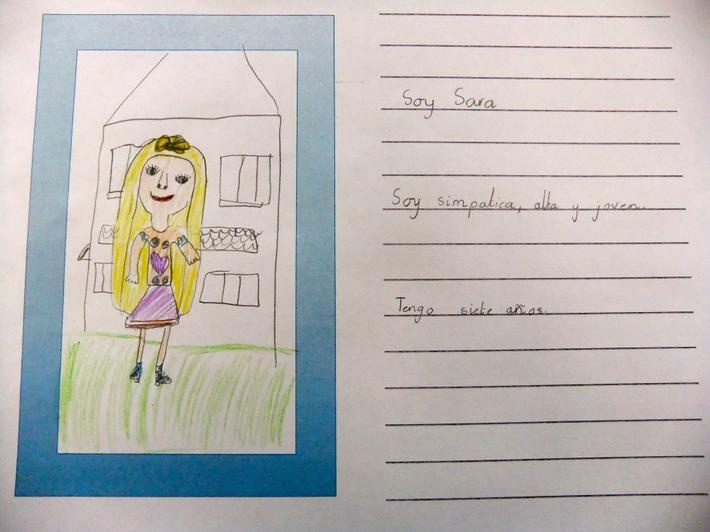 Soy Sara
Soy simpatica, alta y joven.
Tengo siete años.